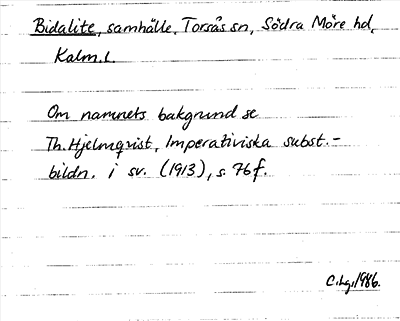 Bidalite, samhälle, Torsås sn, Södra Möre hd,
Kalm. l.
Om namnets bakgrund se
Th. Hjelmqvist, Imperativiska subst.-
bildn. i sv. (1913), s 76 f.
C.hg. 1986.